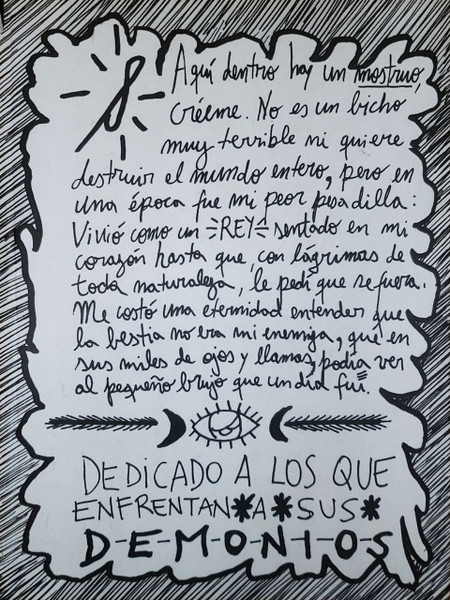 Aquí dentro hay un mostruo,
créeme. No es un bicho
muy terrible ni quiere
destruir el mundo entero, pero en
una época fue mi peor pesadilla:
Vivió como un REY sentado en mi
corazón hasta que, con lágrimas de
toda naturaleza, le pedí que se fuera.
Me costó una eternidad entender que
la bestia no era mi enemiga, que en
sus miles de ojos y llamas, podía ver
al pequeño brujo que un día fui.
DEDICADO A LOS QUE
ENFRENTAN*A*SUS*
D-E-M-O-N-I-O-S